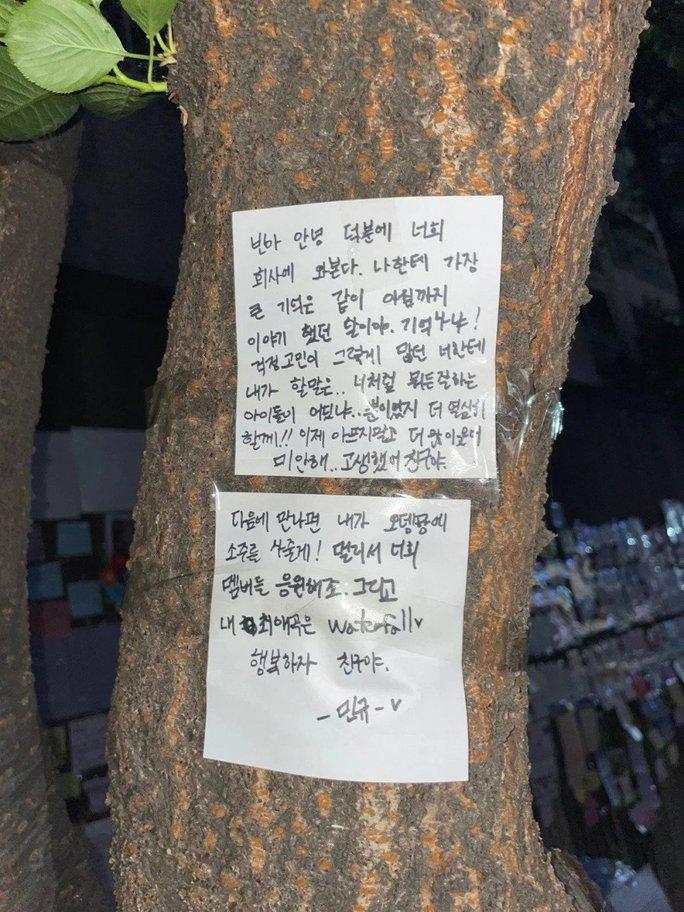 빈아 안녕 덕분에 너희
회사에 와본다. 나한테 가장
큰 기억은 같이 아침까지
이야기 했던 날이야. 기억나냐!
걱정고민이 그렇게 많던 너한테
내가 할말은.. 너처럼 뭐든잘하는
아이돌이 어딨냐.. 뿐이었지 더 열심히
할께!! 이제 아프지말고 더 못 해줘서
미안해.. 고생했어 친구야.
다음에 만나면 내가 오뎅탕에
소주를 사줄게! 멀리서 너희
멤버들 응원해죠. 그리고
내 최애곡은 waterfall♥
행복하자 친구야.
- 민규 - ♥